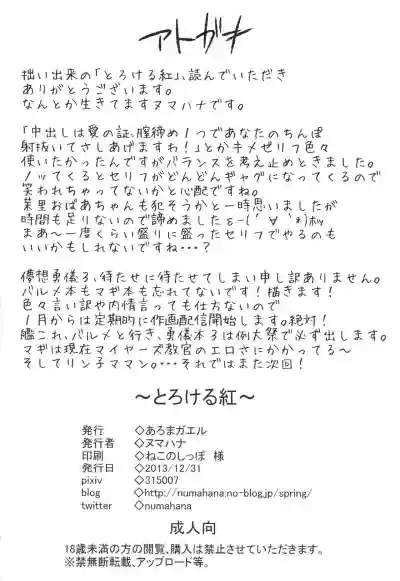 アトガキ
拙い出来の「とろける紅」、読んでいただき
ありがとうございます。
なんとか生きてますヌマハナです。
「中出しは愛の証、膣締め1つであなたのちんぽ
射抜いてさしあげますわ!」とかキメゼリフ色々
使いたかったんですがバランスを考え止めときました。
ノッてくるとセリフがどんどんギャグになってくるので
笑われちゃってないかと心配ですね。
菜里おばあちゃんも犯そうかと一時思いましたが
時間も足りないので諦めました ε-(´∀｀*)ホッ
まあ～一度くらい盛りに盛ったセリフでやるのも
いいかもしれないですね・・・?
儚想勇儀3、待たせに待たせてしまい申し訳ありません。
パルメ本もマギ本も忘れてないです!描きます!
色々言い訳や内情言っても仕方ないので
1月からは定期的に作画配信開始します。絶対!
艦これ、パルメと行き、勇儀本3は例大祭で必ず出します。
マギは現在マイヤーズ教官のエロさにかかってる～
そしてリン子ママン。・・・それではまた次回!
～とろける紅～
発行 ◇あろまガエル
発行者 ◇ヌマハナ
印刷 ◇ねこのしっぽ 様
発行日 ◇2013/12/31
pixiv ◇315007
blog ◇http://numahana.no-blog.jp/spring/
twitter ◇numahana
成人向
18歳未満の方の閲覧、購入は禁止させていただきます。
※禁無断転載、アップロード等。